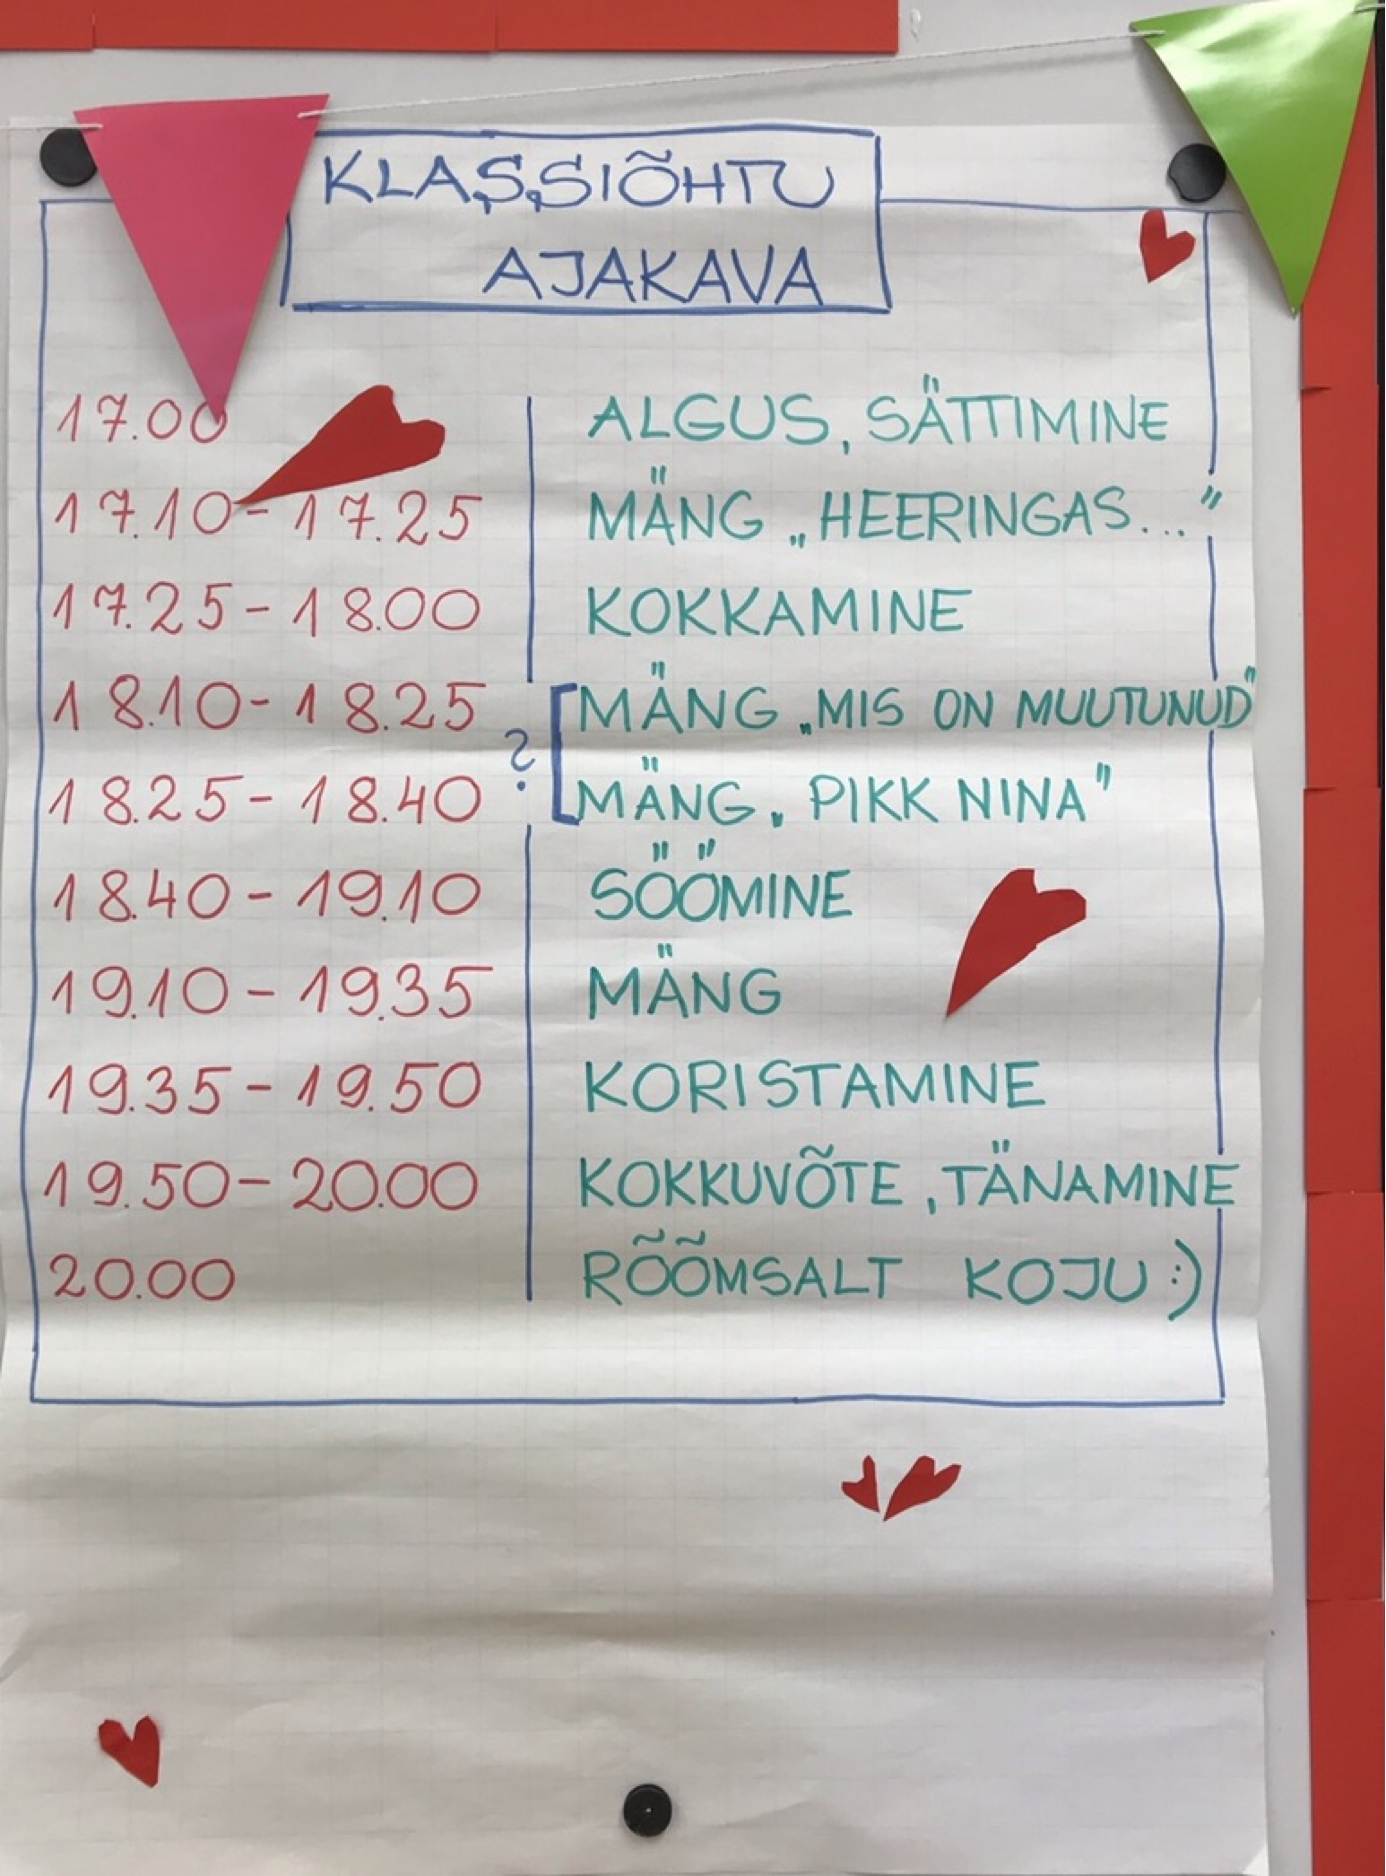 KLASSIÕHTU
AJAKAVA
17.00 ALGUS, SÄTTIMINE
17.10-17.25 MÄNG „HEERINGAS..."
17.25-18.00 KOKKAMINE
18.10-18.25 [MÄNG „MIS ON MUUTUNUD"
?
18.25-18.40 MÄNG „PIKK NINA"
18.40-19.10 SÖÖMINE
19.10-19.35 MÄNG
19.35-19.50 KORISTAMINE
19.50-20.00 KOKKUVÕTE, TÄNAMINE
20.00 RÕÕMSALT KOJU :)